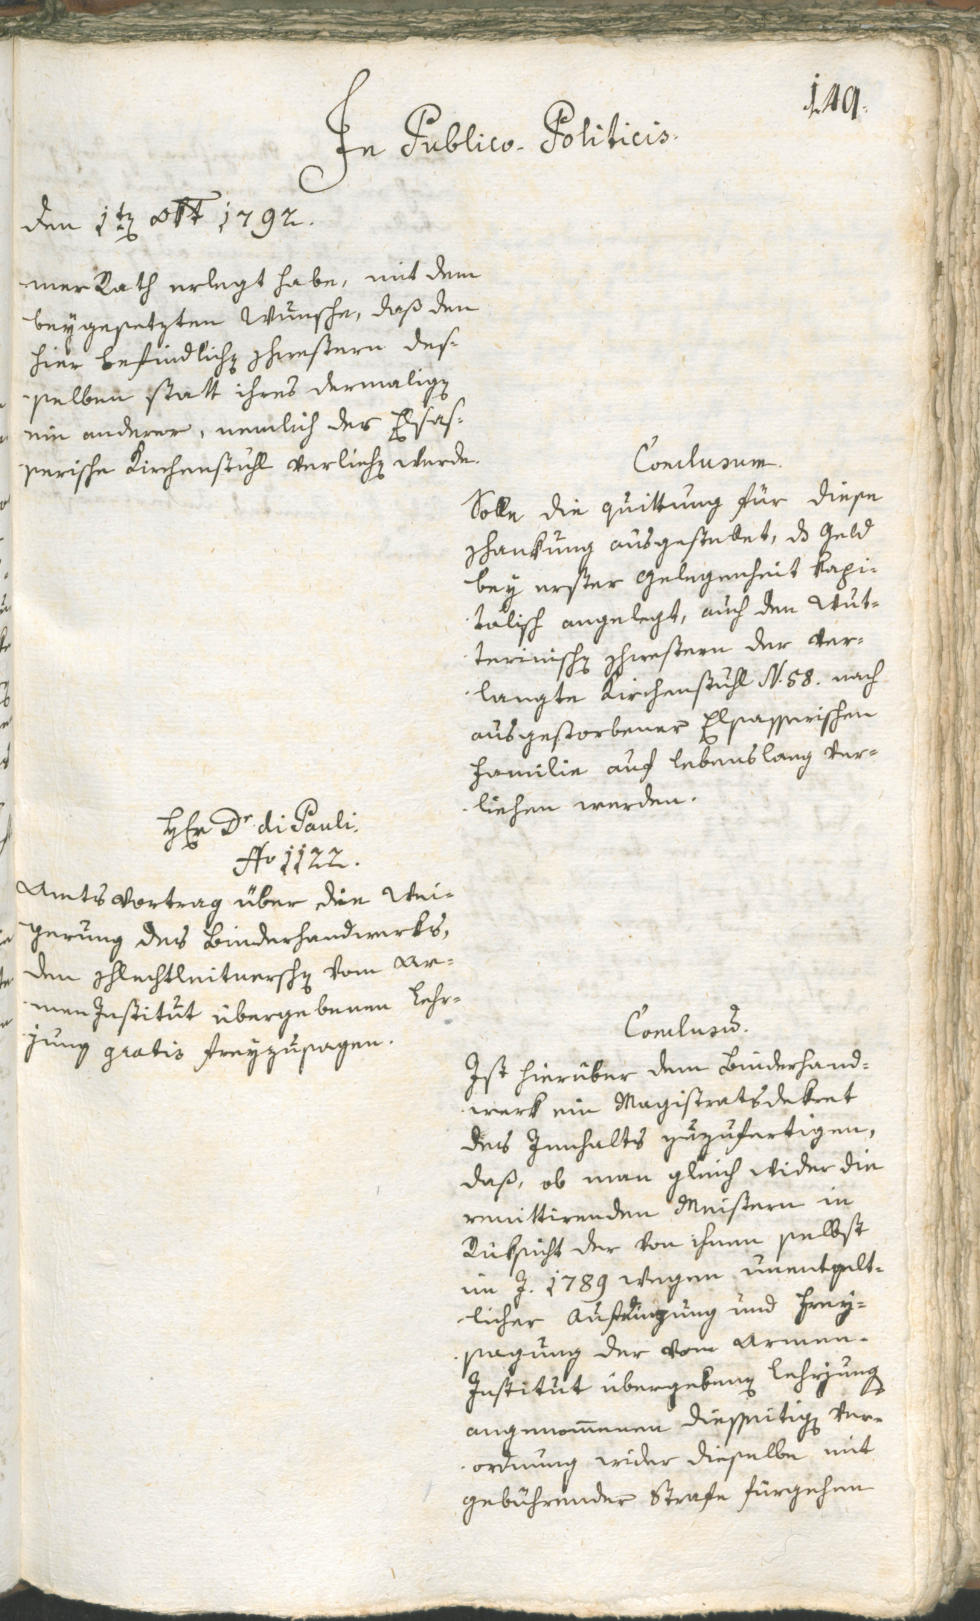 149.
In Publico-Politicis.
den 1ten Okt 1792.
mer Rath erlegt habe, mit dem
beygesetzten Wunsche, daß den
hier befindlichen Schwestern des-
selben statt ihres dermaligen
ein anderer, nemlich der Elsas-
serische Kirchenstuhl verliehen werde.
Conclusum.
Solle die Quittung für diese
Schankung ausgestellet, das Geld
bey erster Gelegenheit kapi-
talisch angelegt, auch den Wut-
terinischen Schwestern der ver-
langte Kirchenstuhl N. 58. nach
ausgestorbener Elsasserischen
Familie auf lebenslang ver-
liehen werden.
Herr Dr di Pauli.
No 1122.
Amtsvortrag über die Wei-
gerung des Binderhandwerks,
den Schlechtleitnerschen vom Ar-
men Institut übergebenen Lehr-
jung gratis freyzusagen.
Conclusum.
Ist hierüber dem Binderhand-
werk ein Magistratsdekret
des Innhalts zuzufertigen,
daß, ob man gleich wider die
renittirenden Meistern in
Rüksicht der von ihnen selbst
im J. 1789 wegen unentgelt-
licher Aufdingung und Frey-
sagung der vom Armen-
Institut übergebenen Lehrjung
angenommenen diesseitigen Ver-
ordnung wider dieselbe mit
gebührender Strafe fürgehen